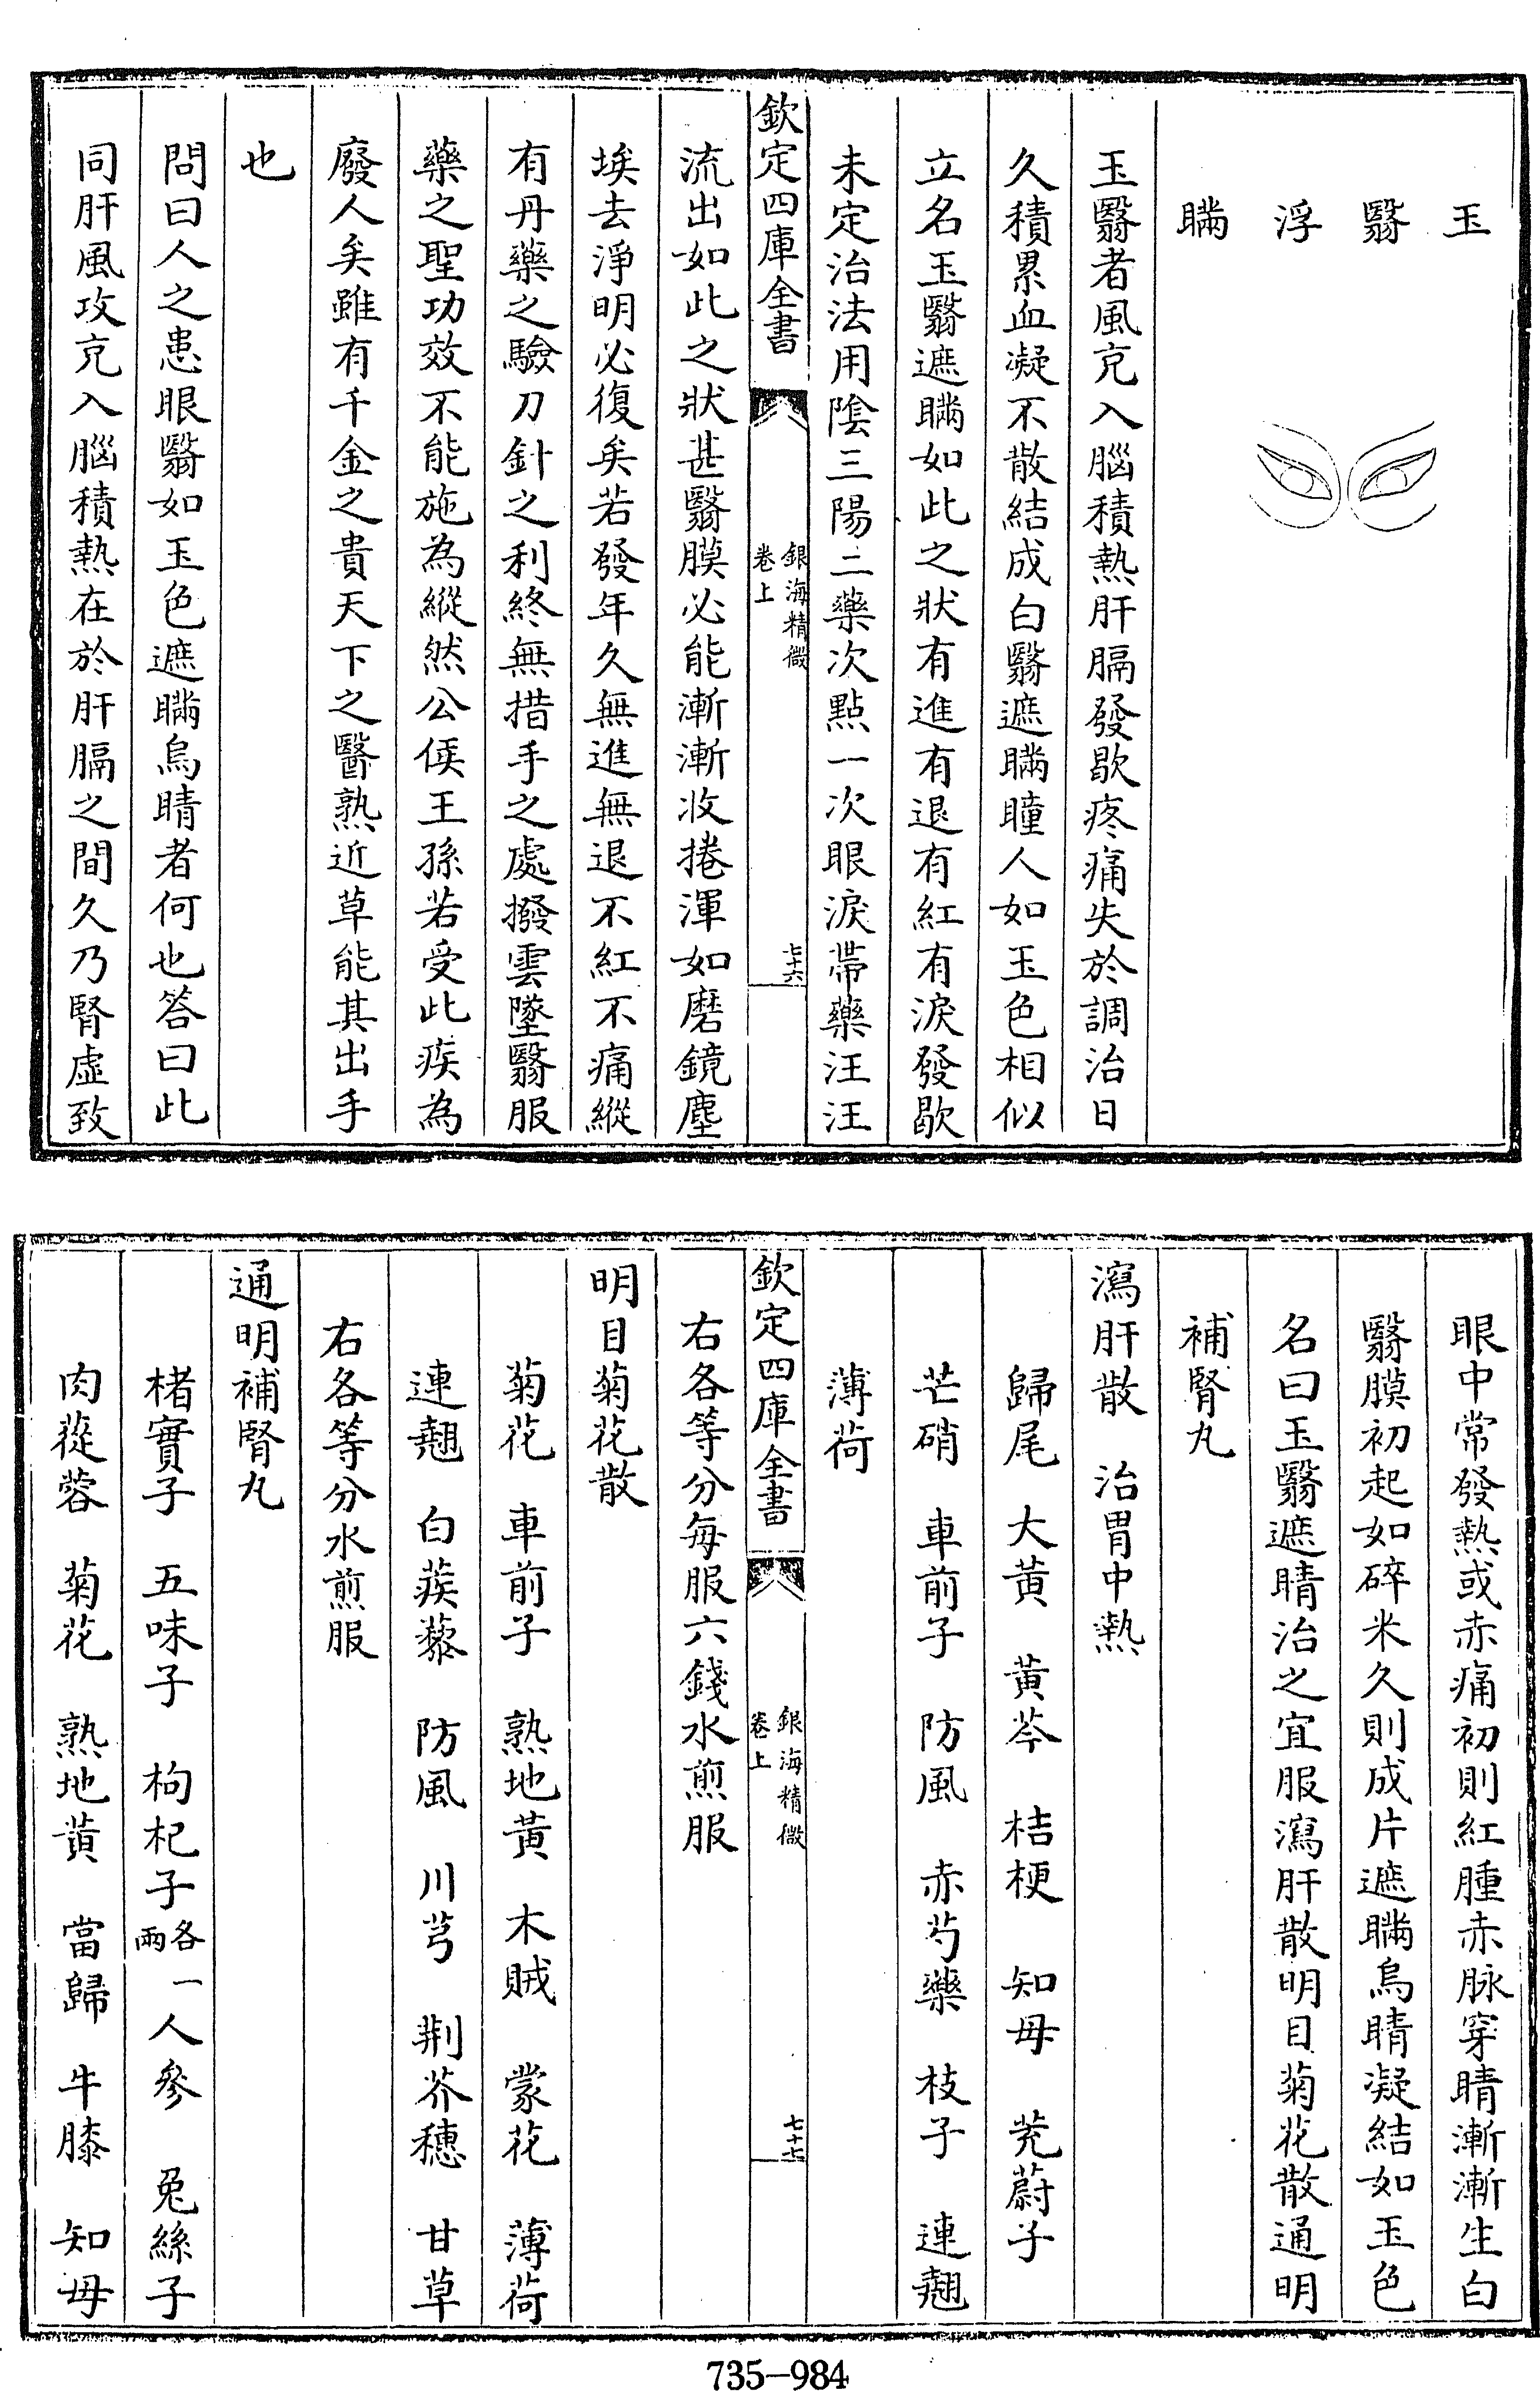 玉翳浮瞞
玉翳者風充入腦積熱肝膈發歇疼痛失於調治日
久積累血凝不散結成白翳遮瞞瞳人如玉色相似
立名玉翳遮瞞如此之狀有進有退有紅有淚發歇
未定治法用陰三陽二藥次點一次眼淚帶藥汪汪
欽定四庫全書
銀海精微
卷上
七十六
流出如此之狀甚翳膜必能漸漸收捲渾如磨鏡塵
埃去淨明必復矣若發年久無進無退不紅不痛縱
有丹藥之驗刀針之利終無措手之處撥雲墜翳服
藥之聖功效不能施為縱然公侯王孫若受此疾為
廢人矣雖有千金之貴天下之醫熟近草能其出手
也
問曰人之患眼翳如玉色遮瞞烏睛者何也答曰此
同肝風攻充入腦積熱在於肝膈之間久乃腎虛致
眼中常發熱或赤痛初則紅腫赤脉穿睛漸漸生白
翳膜初起如碎米久則成片遮瞞烏睛凝結如玉色
名曰玉翳遮睛治之宜服瀉肝散明目菊花散通明
補腎丸
瀉肝散 治胃中熱
歸尾 大黃 黃芩 桔梗 知母 茺蔚子
芒硝 車前子 防風 赤芍藥 枝子 連翹
薄荷
欽定四庫全書
銀海精微
卷上
七十七
右各等分每服六錢水煎服
明目菊花散
菊花 車前子 熟地黃 木賊 蒙花 薄荷
連翹 白蒺藜 防風 川芎 荆芥穗 甘草
右各等分水煎服
通明補腎丸
楮實子 五味子 枸杞子各一兩 人參 兔絲子
肉蓯蓉 菊花 熟地黃 當歸 牛膝 知母
735-984